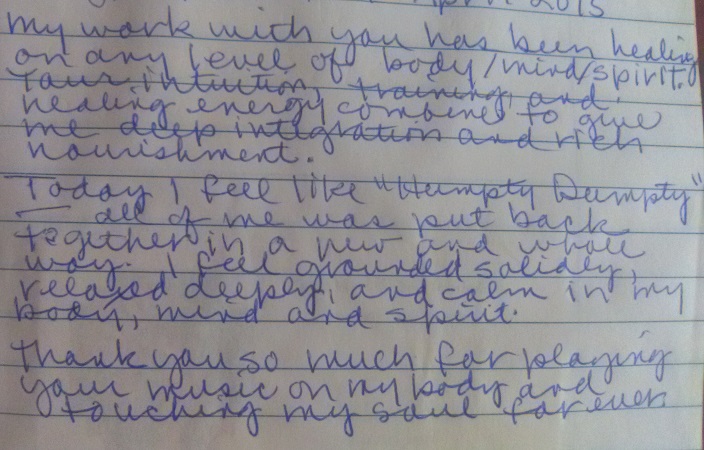 April 2015
My work with you has been healing
on any level of body/mind/spirit.
Your intuition, training and
healing energy combines to give
me deep integration and rich
nourishment.
Today I feel like "Humpty Dumpty"
— all of me was put back
together in a new and whole
way. I feel grounded solidly,
relaxed deeply, and calm in my
body, mind and spirit.
Thank you so much for playing
your music on my body and
touching my soul forever